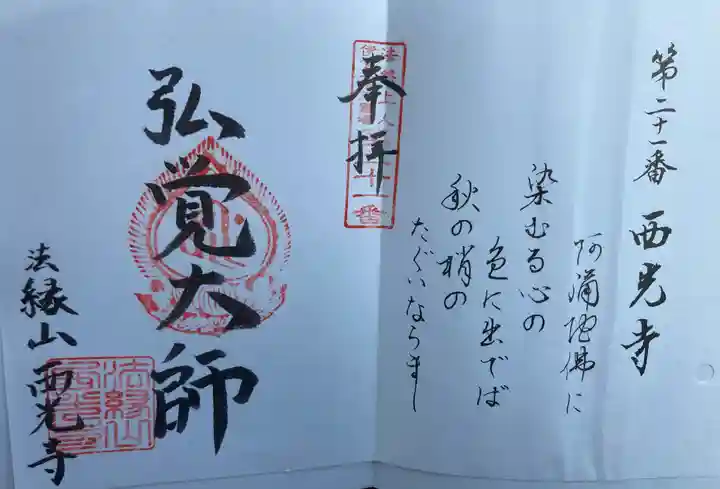 第二十一番 西光寺
阿彌陀佛に
染むる心の
色に出でば
秋の梢の
たぐいならまし
奉拝
二十一番
弘覚大師
法縁山 西光寺
法縁山